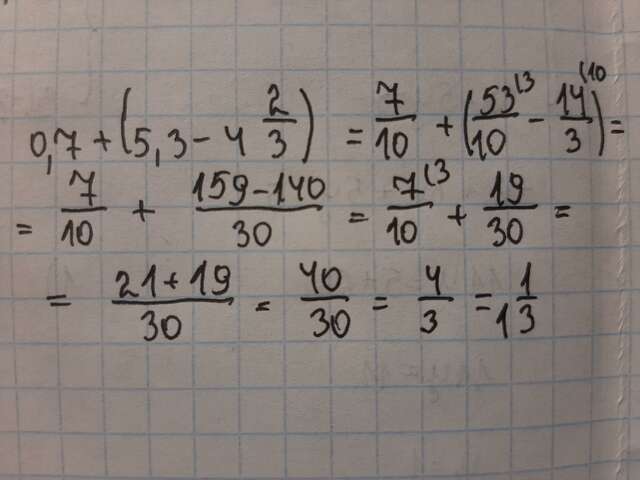 0,7 + (5,3 - 4 2/3) = 7/10 + (53/10 (3 - 14/3 (10) =
= 7/10 + 159-140/30 = 7/10 (3 + 19/30 =
= 21+19/30 = 40/30 = 4/3 = 1 1/3